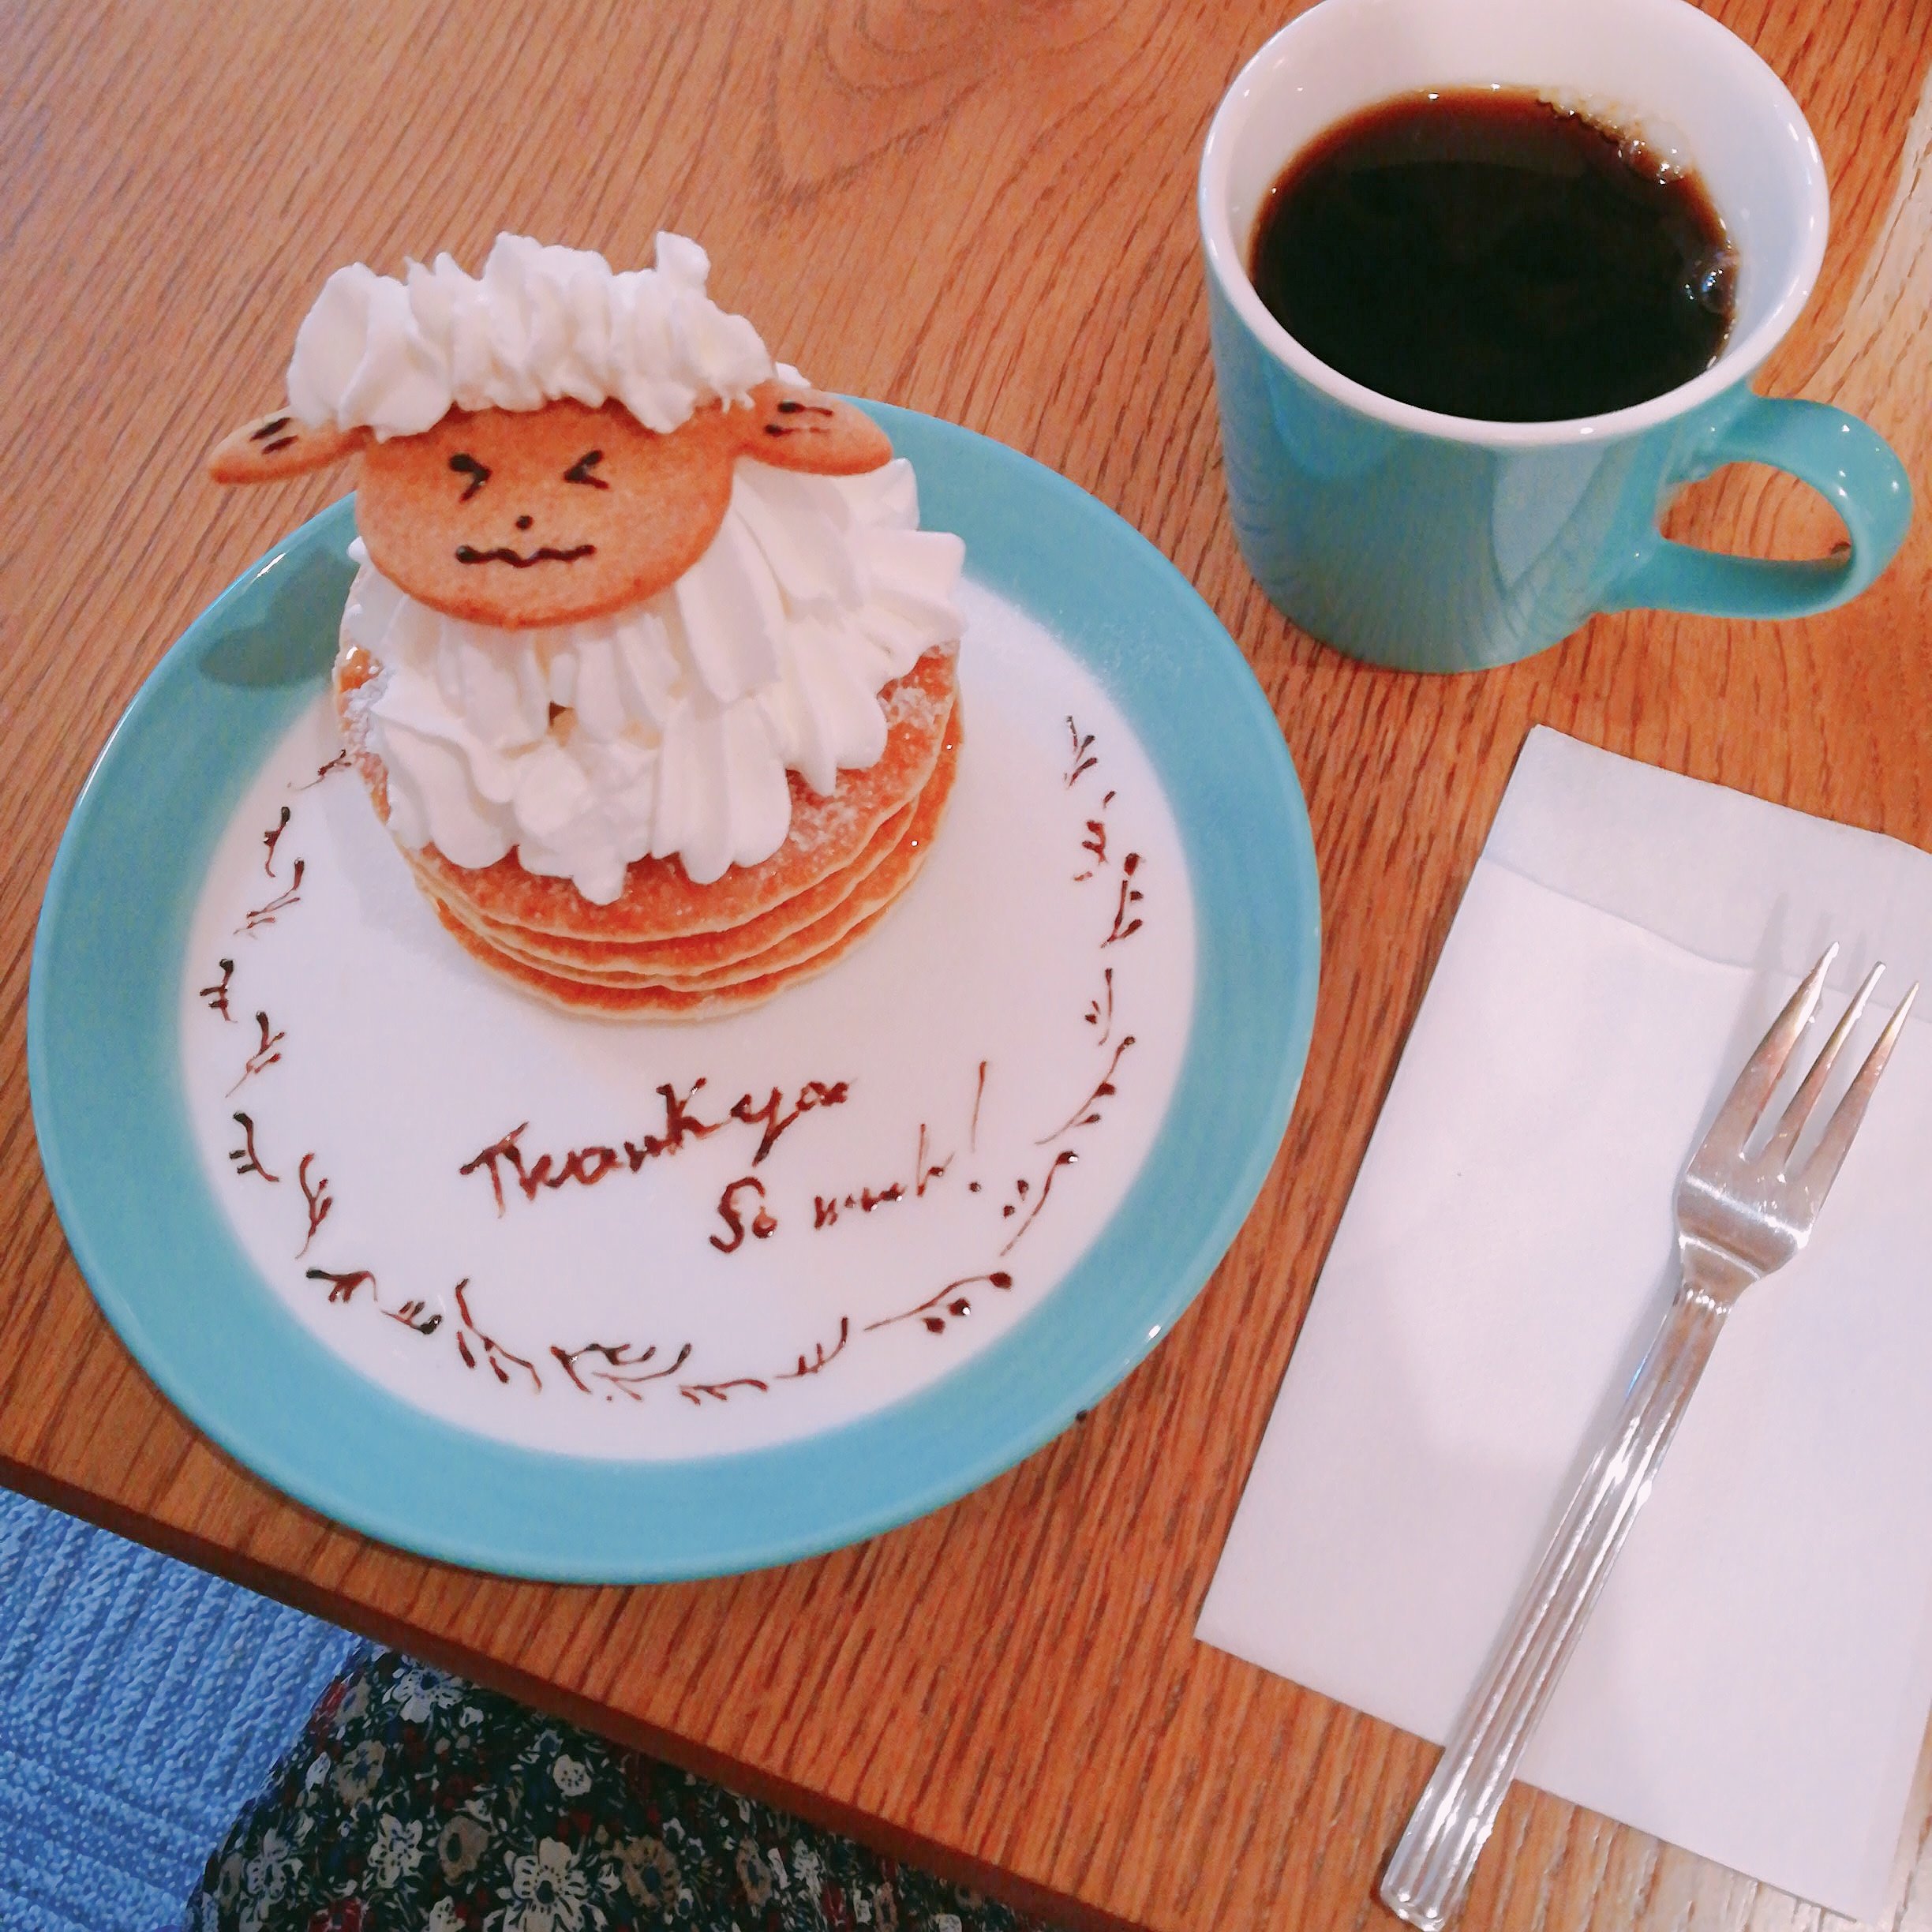 Thank you
So much!